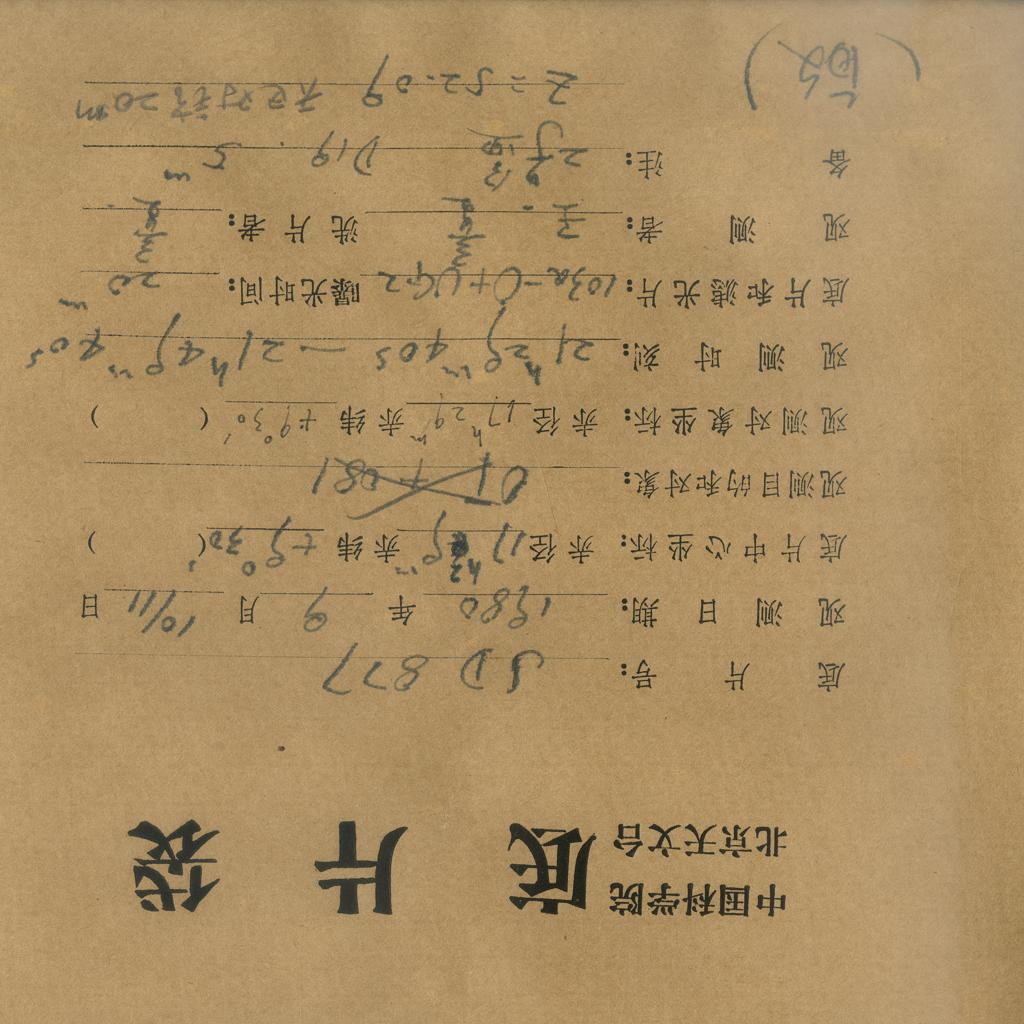 中国科学院
北京天文台
底 片 袋
底片号: SD 877
观测日期: 1980 年 9 月 10/11 日
底片中心坐标: 赤径 17h 29m 赤纬 +9°30′ ( )
观测目的和对象: OT+081
观测对象坐标: 赤径 17h29m 赤纬 +9°30′ ( )
观测时刻: 21h29m40s — 21h49m40s
底片和滤光片: 103a-O+UG2 曝光时间: 20m
观测者: 王. 洗片者:
备注: D19. 5m
Z=52.09